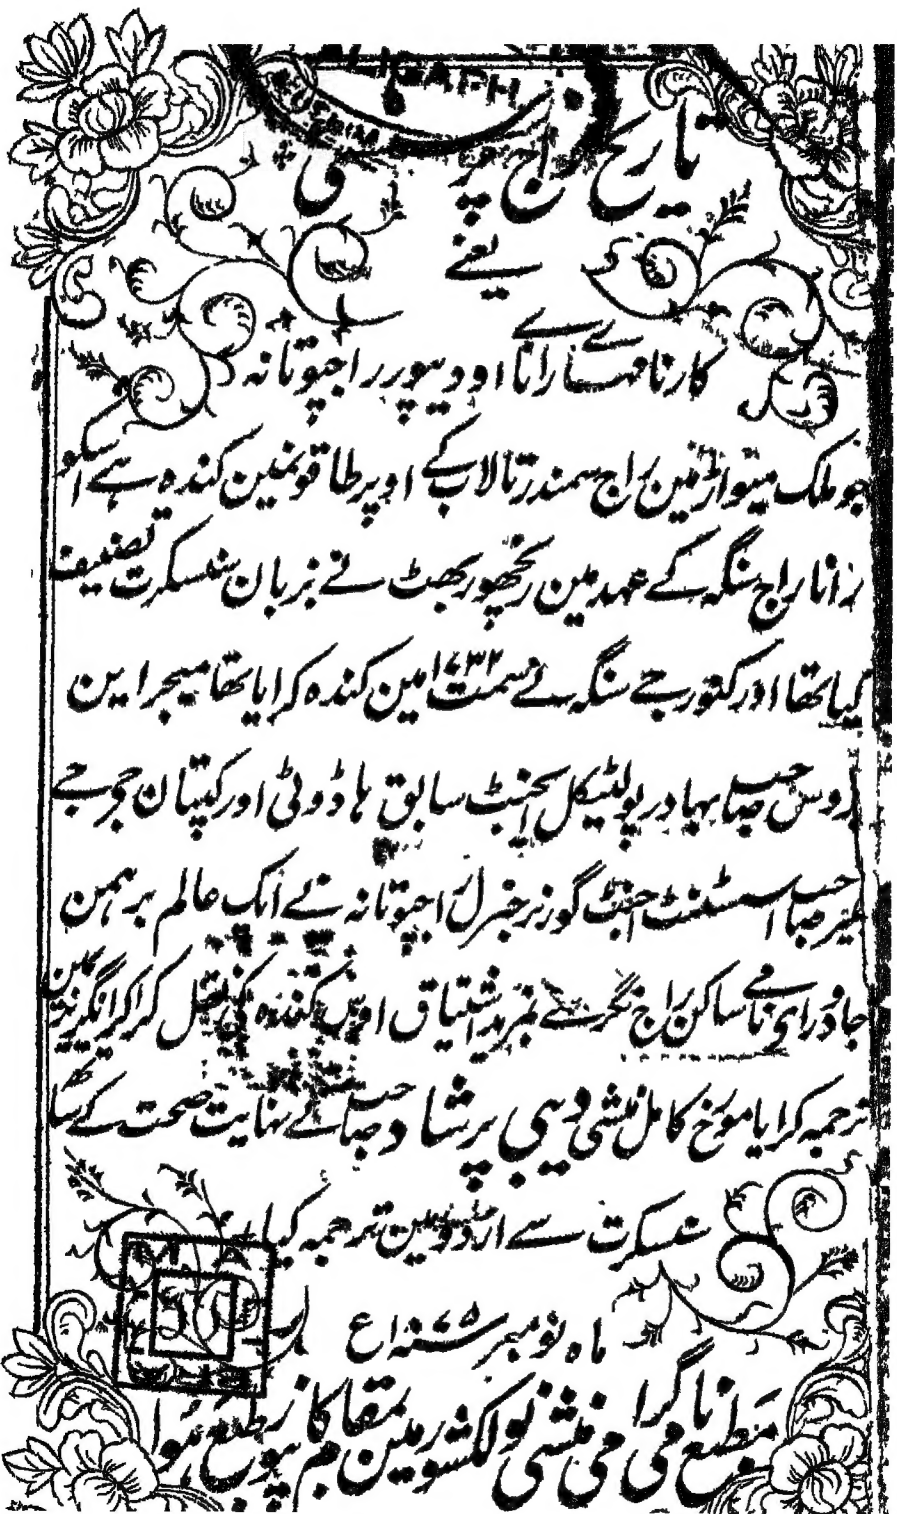 تاریخ راج پرشستی
یعنے
کارنامہاے مہارانا اودیپور راجپوتانہ
جو ملک میواڑ مین راج سمندر تالاب کے اوپر طاقونمین کندہ ہے اسکو
رانا راج سنگہ کے عہد مین رنچھور بھٹ نے بزبان سنسکرت تصنیف
کیا تھا اور کنور جے سنگہ نے سمت ۱۷۳۲ مین کندہ کرایا تھا میجر این
بروس صاحب بہادر پولٹیکل ایجنٹ سابق ہاڈوٹی اور کپتان جے
میر صاحب اسسٹنٹ اجنٹ گورنر جنرل راجپوتانہ نے ایک عالم برہمن
جادورای نامے ساکن راج نگر سے بمزید اشتیاق اوس کندہ کی نقل کرا کر انگریزی مین
ترجمہ کرایا مورخ کامل منشی دیبی پرشاد صاحب نے نہایت صحت کے ساتھ
سنسکرت سے اردو مین ترجمہ کیا
ماہ نومبر ۱۸۷۵ء
مطبع نامی گرامی منشی نولکشور مین بمقام کانپور طبع ہوا